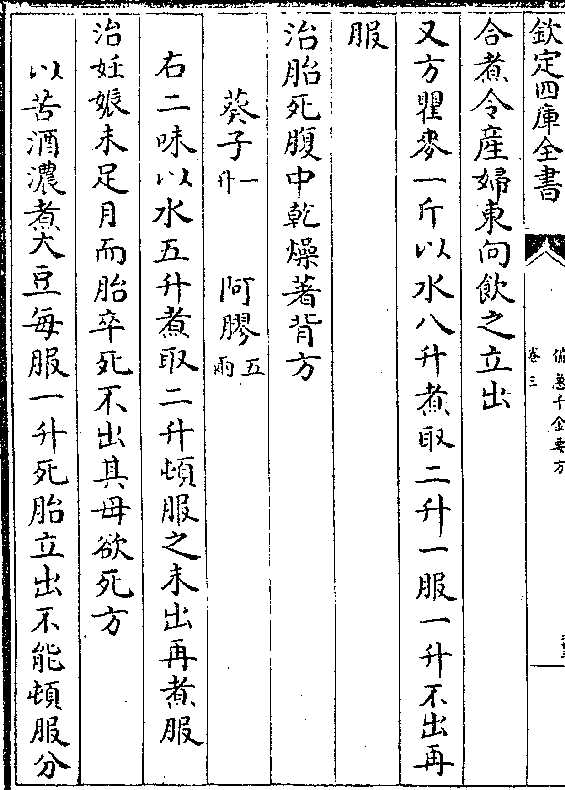 欽定四庫全書
備急千金要方
卷三
合煮令産婦東向飲之立出
又方瞿麥一斤以水八升煮取二升一服一升不出再
服
治胎死腹中乾燥著背方
葵子一升　阿膠五兩
右二味以水五升煮取二升頓服之未出再煮服
治妊娠未足月而胎卒死不出其母欲死方
以苦酒濃煮大豆每服一升死胎立出不能頓服分